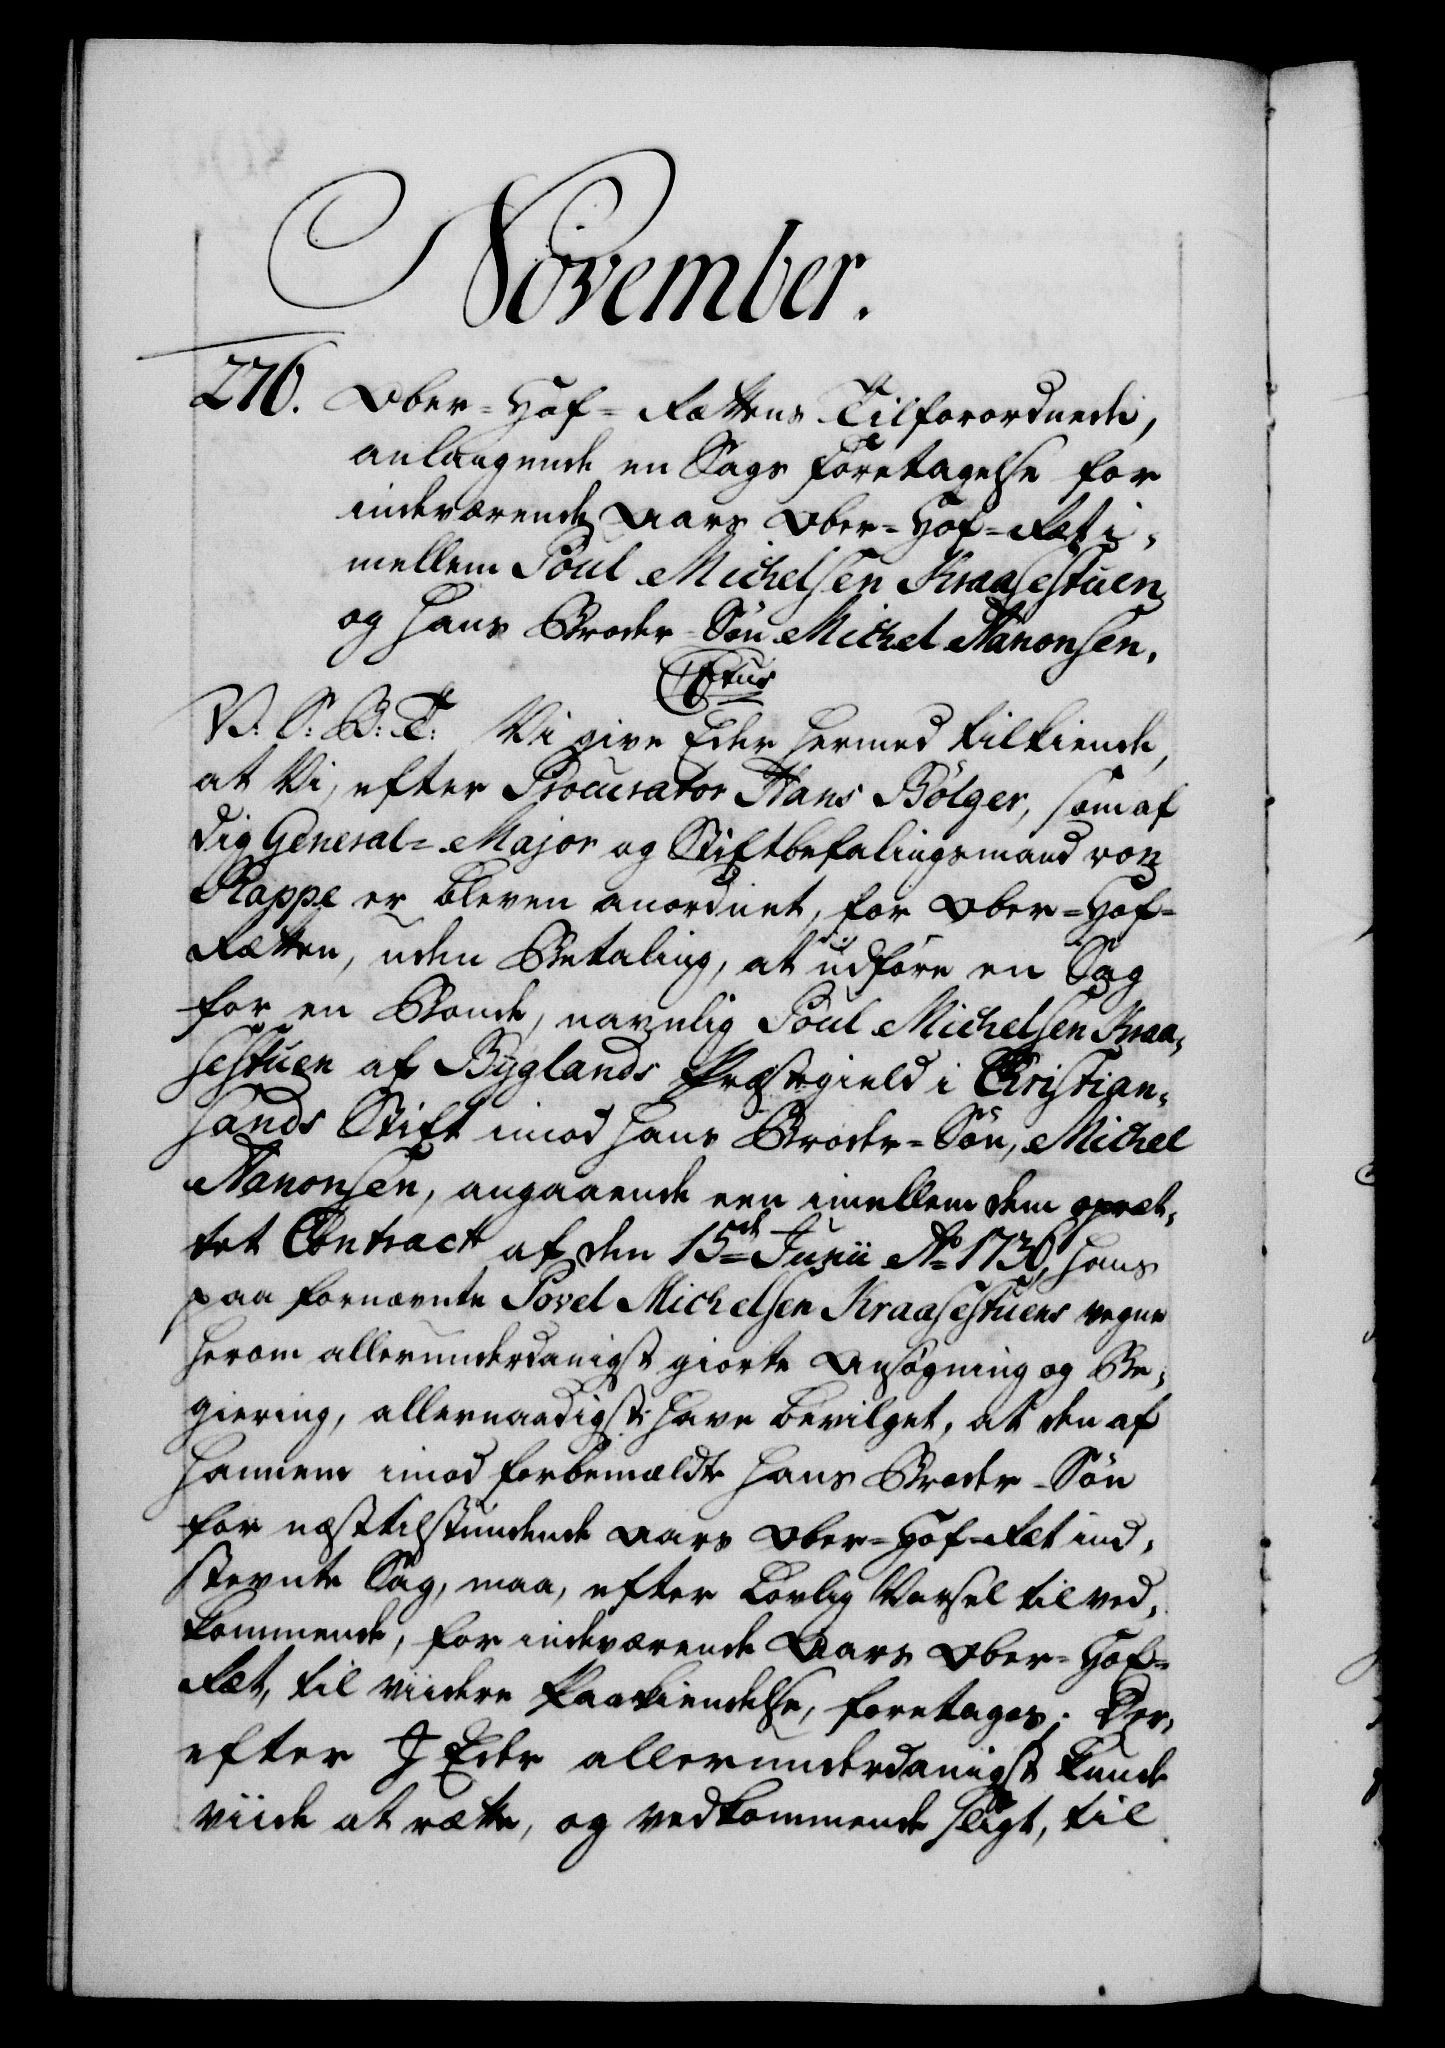 November.
276. Ober-Hof-Rettens Tilforordnede,
anlangende en Sags foretagelse for
indeværende Aars Ober-Hof-Ret i-
mellem Poul Michelsen Kraasestuen
og hans Broder-Søn Michel Aanonsen.
V: S: B: T: Vi give Eder hermed tilkiende,
at Vi, efter Procurator Hans Bölger, som af
dig General-Major og Stiftbefalingsmand von
Rappe er bleven anordnet, for Ober-Hof-
Retten, uden Betaling, at udføre en Sag
for en Bonde, navnlig Poul Michelsen Kraa-
sestuen af Byglands Præstegield i Christian-
sands Stift imod hans Broder-Søn, Michel
Aanonsen, angaaende een imellem dem opret-
tet Contract af den 15de Junii Ao 1736, hans
paa fornævnte Povel Michelsen Kraasestuens vegne
herom allerunderdanigst giorte Ansøgning og Be-
giering, allernaadigst have bevilget, at den af
hannem imod forbemældte hans Broder-Søn
for næsttilstundende Aars Ober-Hof-Ret ind-
stevnte Sag, maa, efter Lovlig Varsel til ved-
kommende, for indeværende Aars Ober-Hof-
Ret, til viidere Paakiendelse, foretages. Der-
efter I Eder allerunderdanigst kunde
viide at rette, og vedkommende sligt, til